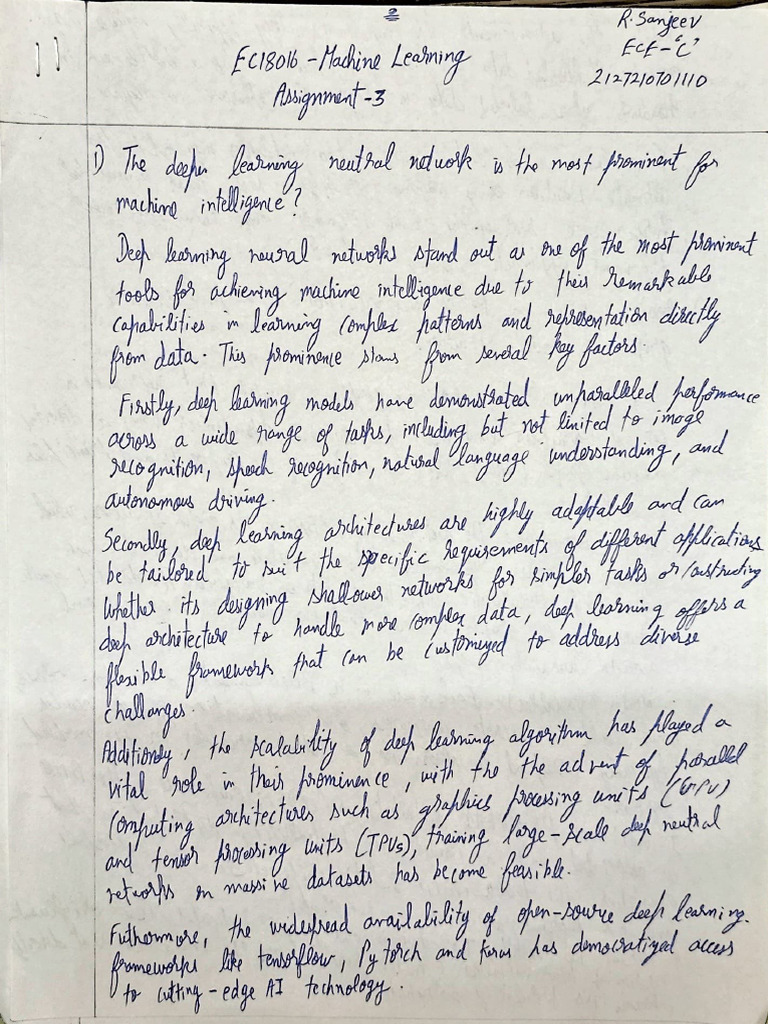 R. Sanjeev
ECE-'C'
2127210701110
EC18016 - Machine Learning
Assignment-3
1) The deeper learning neutral network is the most prominent for
machine intelligence?
Deep learning neural networks stand out as one of the most prominent
tools for achieving machine intelligence due to their remarkable
capabilities in learning complex patterns and representation directly
from data. This prominence stems from several key factors.
Firstly, deep learning models have demonstrated unparalleled performance
across a wide range of tasks, including but not limited to image
recognition, speech recognition, natural language understanding, and
autonomous driving.
Secondly, deep learning architectures are highly adaptable and can
be tailored to suit the specific requirements of different applications
Whether its designing shallower networks for simpler tasks or constructing
deep architecture to handle more complex data, deep learning offers a
flexible frameworks that can be customized to address diverse
challanges.
Additionaly, the scalability of deep learning algorithm has played a
vital role in their prominence, with the the advent of parallel
computing architectures such as graphics processing units (GPU)
and tensor processing units (TPUs), training large-scale deep neutral
networks on massive datasets has become feasible.
Futhermore, the widespread availability of open-source deep learning.
frameworks like tensorflow, PyTorch and Keras has democratized access
to cutting-edge AI technology.